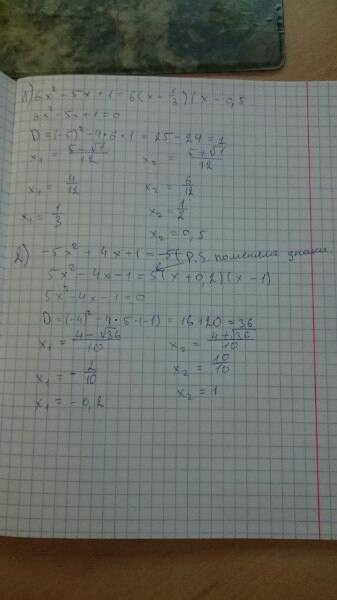 1) 6x² - 5x + 1 = 6(x - 1/3)(x - 0,5
6x² - 5x + 1 = 0
D = (-5)² - 4 • 6 • 1 = 25 - 24 = 1
x₁ = (5 - √1)/12 x₂ = (5 + √1)/12
x₁ = 4/12 x₂ = 6/12
x₁ = 1/3 x₂ = 1/2
x₂ = 0,5
2) -5x² + 4x + 1 = -5( P.S. поменяла знаки
5x² - 4x - 1 = 5(x + 0,2)(x - 1)
5x² - 4x - 1 = 0
D = (-4)² - 4 • 5 • (-1) = 16 + 20 = 36
x₁ = (4 - √36)/10 x₂ = (4 + √36)/10
x₁ = - 2/10 x₂ = 10/10
x₁ = - 0,2 x₂ = 1